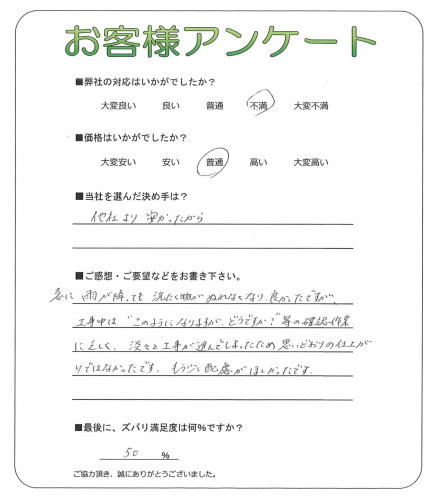 お客様アンケート
■弊社の対応はいかがでしたか?
大変良い 良い 普通 不満 大変不満
■価格はいかがでしたか?
大変安い 安い 普通 高い 大変高い
■当社を選んだ決め手は?
他社より安かったから
■ご感想・ご要望などをお書き下さい。
急に雨が降っても洗たく物がぬれなくなり、良かったですが、
工事中は"このようになりますが、どうですか?"等の確認作業
に乏しく、淡々と工事が進んでしまったため思いどおりの仕上が
りではなかったです。もう少し配慮がほしかったです。
■最後に、ズバリ満足度は何%ですか?
50 %
ご協力頂き、誠にありがとうございました。